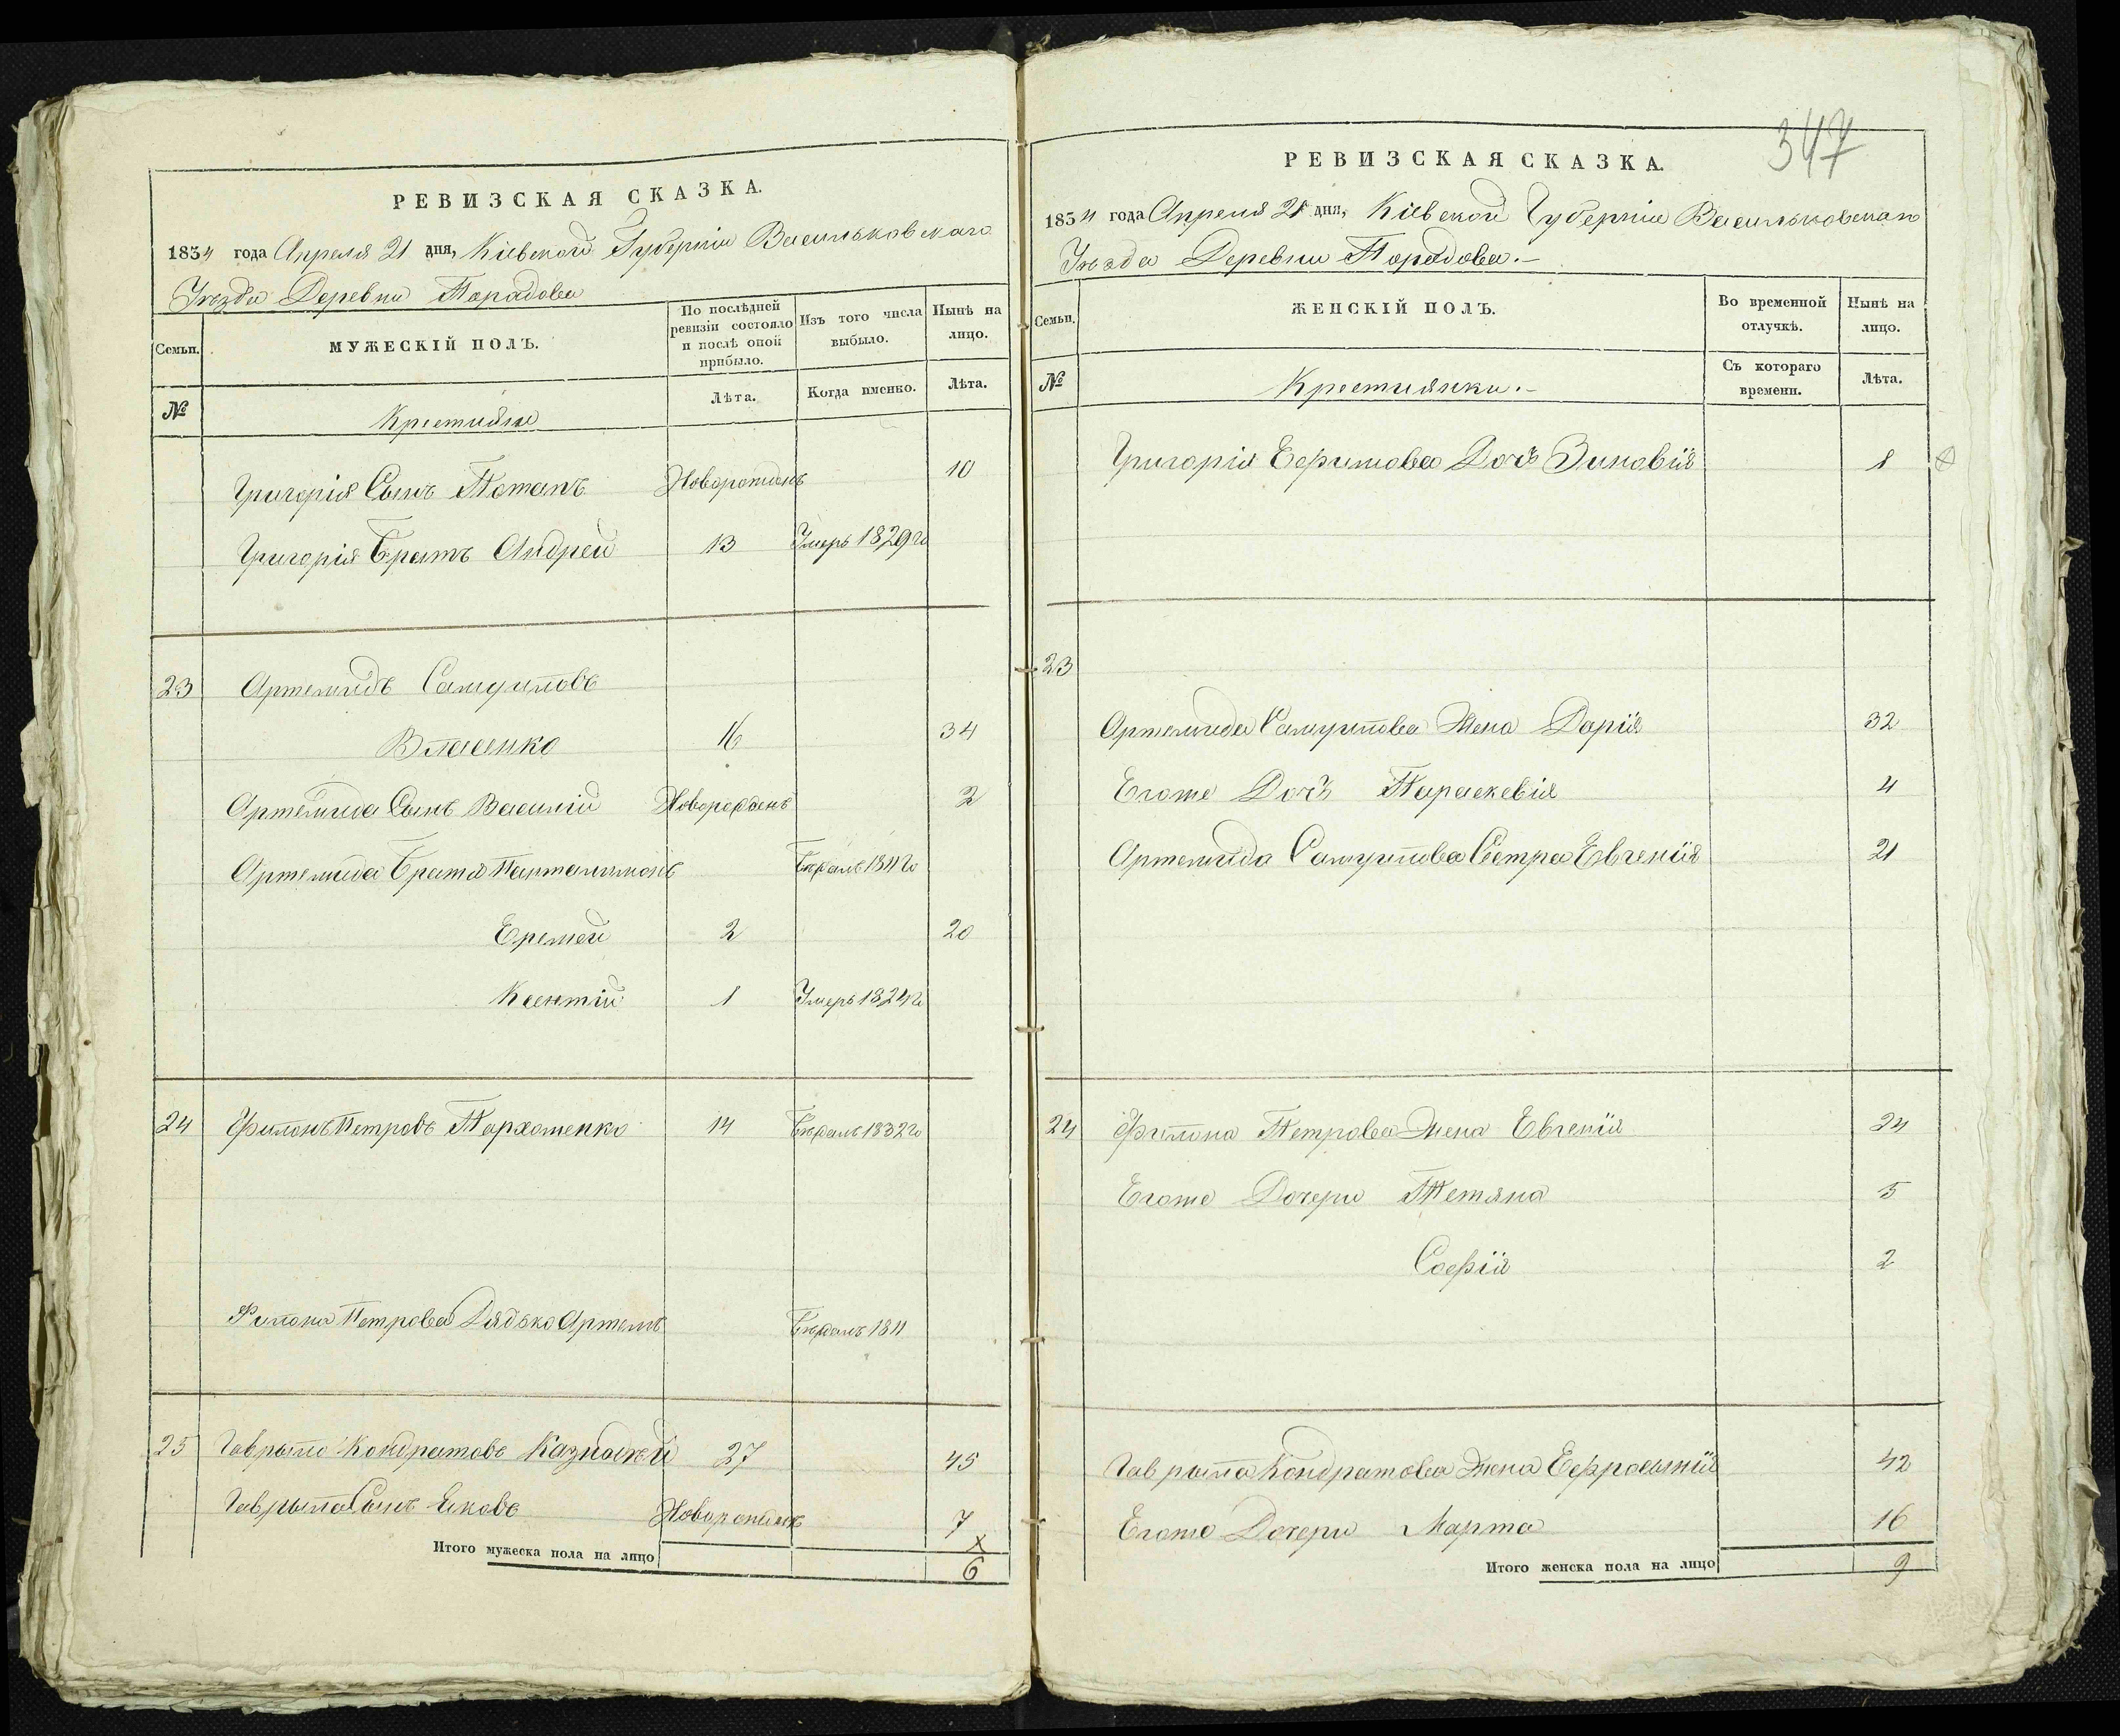 РЕВИЗСКАЯ СКАЗКА.
1834 года Апреля 21 дня, Кіевской Губерніи Васильковскаго
Уѣзда Деревни Парадова
Семьи. МУЖЕСКІЙ ПОЛЪ. По послѣдней ревизіи состояло и послѣ оной прибыло. Изъ того числа выбыло. Нынѣ на лицо.
№ Крестияне Лѣта. Когда именно. Лѣта.
Григорія Сынъ Потапъ Новорожденъ 10
Григорія Братъ Андрей 13 Умеръ 1829го
23 Артемидъ Самуиловъ
Власенко 16 34
Артемида Сынъ Василій Новорожденъ 2
Артемида Братя Пантелимонъ Бѣжалъ 1811го
Еремей 2 20
Ксентій 1 Умеръ 1824го
24 Филонъ Петровъ Пархоменко 14 Бѣжалъ 1832го
Филона Петрова Дядько Артемъ Бѣжалъ 1811
25 Гаврыло Кондратовъ Казнодѣй 27 45
Гаврыла Сынъ Яковъ Новорожденъ 7
х
Итого мужеска пола на лицо 6
347
РЕВИЗСКАЯ СКАЗКА.
1834 года Апреля 21 дня, Кіевской Губерніи Васильковскаго
Уѣзда Деревни Парадова.-
Семьи. ЖЕНСКІЙ ПОЛЪ. Во временной отлучкѣ. Нынѣ на лицо.
№ Крестиянки.- Съ котораго времени. Лѣта.
Григорія Ефимова Дочъ Зиновія 8
23
Артемида Самуилова Жена Дарія 32
Егоже Дочъ Параскевія 4
Артемида Самуилова Сестра Евгенія 21
24 Филона Петрова Жена Евгенія 24
Егоже Дочери Тетяна 5
Софія 2
Гаврыла Кондратова Жена Ефросинія 42
Егоже Дочери Марта 16
Итого женска пола на лицо 9